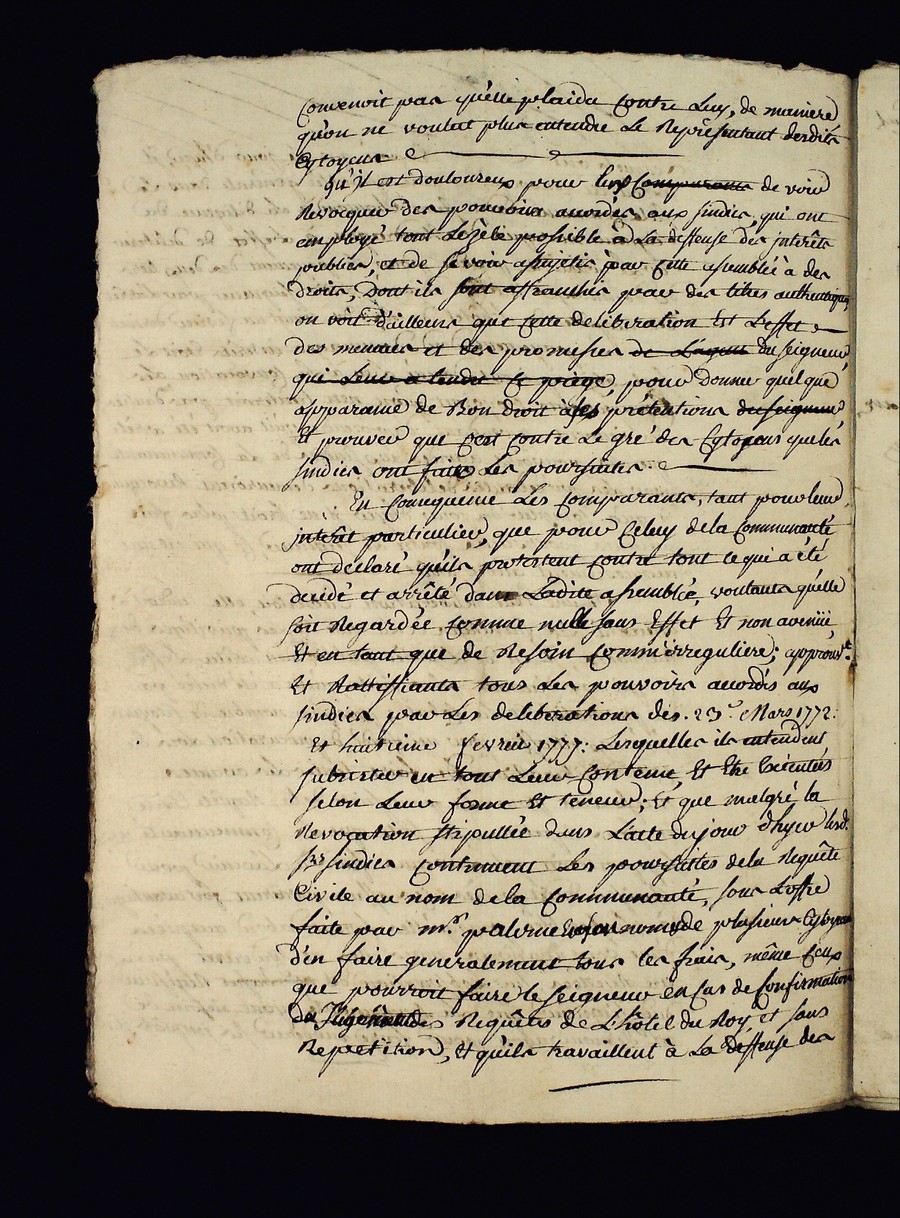 convenoit pas qu'elle plaida contre luy, de maniere
qu'on ne voulut plus entendre le Représentant desdits
Cytoyens
Qu'il est douloureux pour les Comparants de voir
Revocquer des pouvoirs accordés aux sindics, qui ont
employé tout le zèle possible à la deffense des interêts
publics, et de se voir assujetis par cette assemblée à des
droits, dont ils sont affranchis par des titres authentiques,
on voit d'ailleurs que cette deliberation est l'effet
des menaces et des promesses de l'agent du seigneur,
qui leur a tendu ce piège, pour donner quelque
apparance de Bon droit à ses prétentions du seigneur
et prouver que c'est contre le gré des Cytoyens que les
sindics ont faites les poursuites.
En Conséquence les Comparants, tant pour leur
interêt particulier, que pour celuy de la Communauté
ont déclaré qu'ils protestent contre tout ce qui a été
décidé et arrêté dans Ladite assemblée, voulants qu'elle
soit Regardée comme nulle sans Effet et non avenüe
Et en tant que de Besoin comm'irreguliere; approuvt.
Et Rattiffiants tous les pouvoirs accordés aux
sindics par les deliberations des 23e. Mars 1772:
Et huitieme fevrier 1777: Lesquelles ils entendent
subsister en tout leur contenu, Et Etre Executées
selon leur forme Et teneur; Et que malgré la
Revocation stipullée dans l'acte du jour d'hyer lesd.
srs sindics continuent les poursuites de la Requête
Civile au nom de la Communauté, sous l'offre
faite par mr. palerme Enson nom & de plusieurs Cytoyens
d'en faire generalement tous les frais, même ceux
que pourroit faire le seigneur en cas de Confirmation
du Jugement des Requêtes de L'hôtel du Roy, et sans
Repetition, et qu'ils travaillent à la deffense des